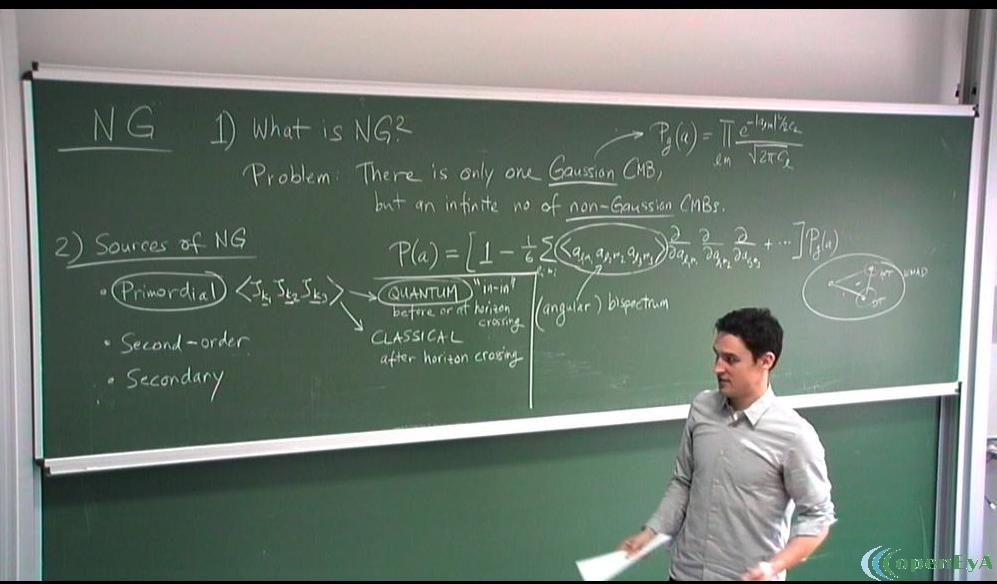 NG 1) What is NG?
P_g(a) = ∏_{lm} e^{-|a_{lm}|²/2C_l} / √(2πC_l)
Problem: There is only one Gaussian CMB,
but an infinite no of non-Gaussian CMBs.
2) Sources of NG
P(a) = [1 - 1/6 Σ ⟨a_{l₁m₁} a_{l₂m₂} a_{l₃m₃}⟩ ∂/∂a_{l₁m₁} ∂/∂a_{l₂m₂} ∂/∂a_{l₃m₃} + ...] P_g(a)
(angular) bispectrum
• Primordial ⟨ζ_{k₁} ζ_{k₂} ζ_{k₃}⟩
QUANTUM "in-in"
before or at horizon
crossing
CLASSICAL
after horizon crossing
• Second-order
• Secondary
ΔT
WMAP
ΔT
openEyA